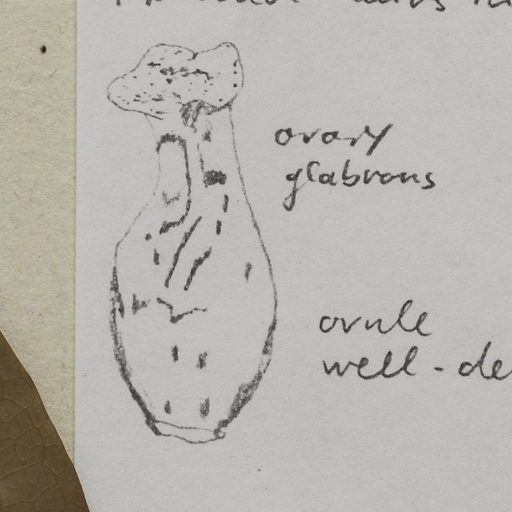 ovary
glabrous
ovule
well-de